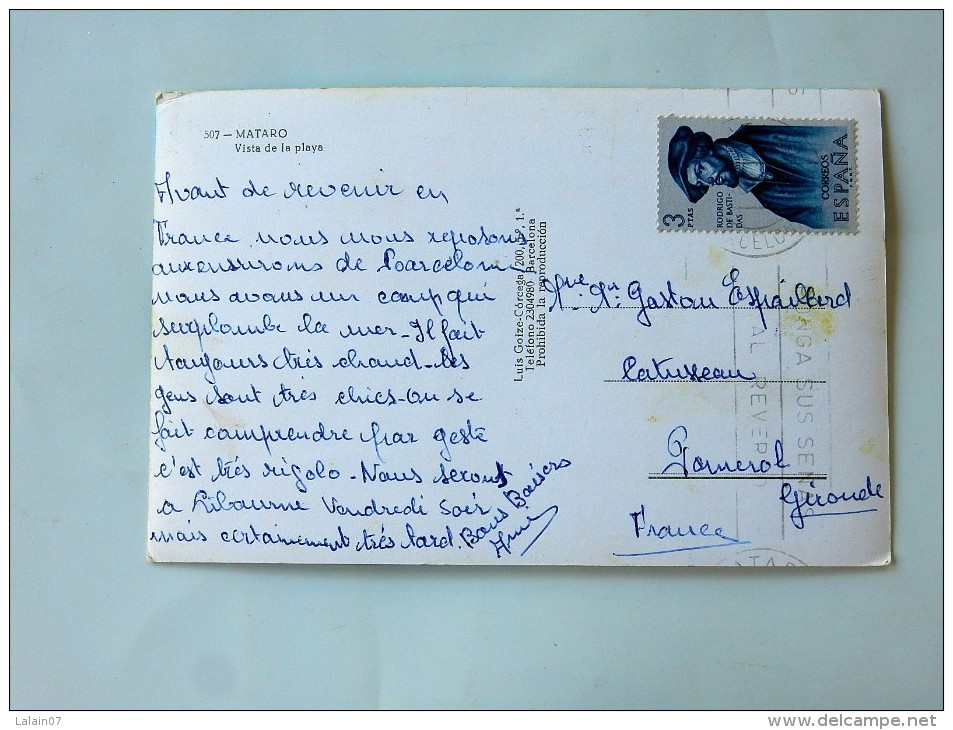 507 — MATARO
Vista de la playa
Avant de revenir en
France nous nous reposons
aux environs de Barcelone
nous avons un camp qui
surplombe la mer - Il fait
toujours très chaud - les
gens sont très chics - on se
fait comprendre par geste
c'est très rigolo - Nous serons
a Libourne Vendredi soir
mais certainement très tard.
Bons Baisers
Luis Goize-Córcega, 200, 1.ª
Teléfono 2304980 - Barcelona
Prohibida la reproducción
3 PTAS
RODRIGO
DE BASTI-
DAS
CORREOS
ESPAÑA
Gaston Espaillard
Catusseau
Pomerol
Gironde
France
PONGA SUS SEÑAS
AL REVERSO
Lalain07
http://www.delcampe.net